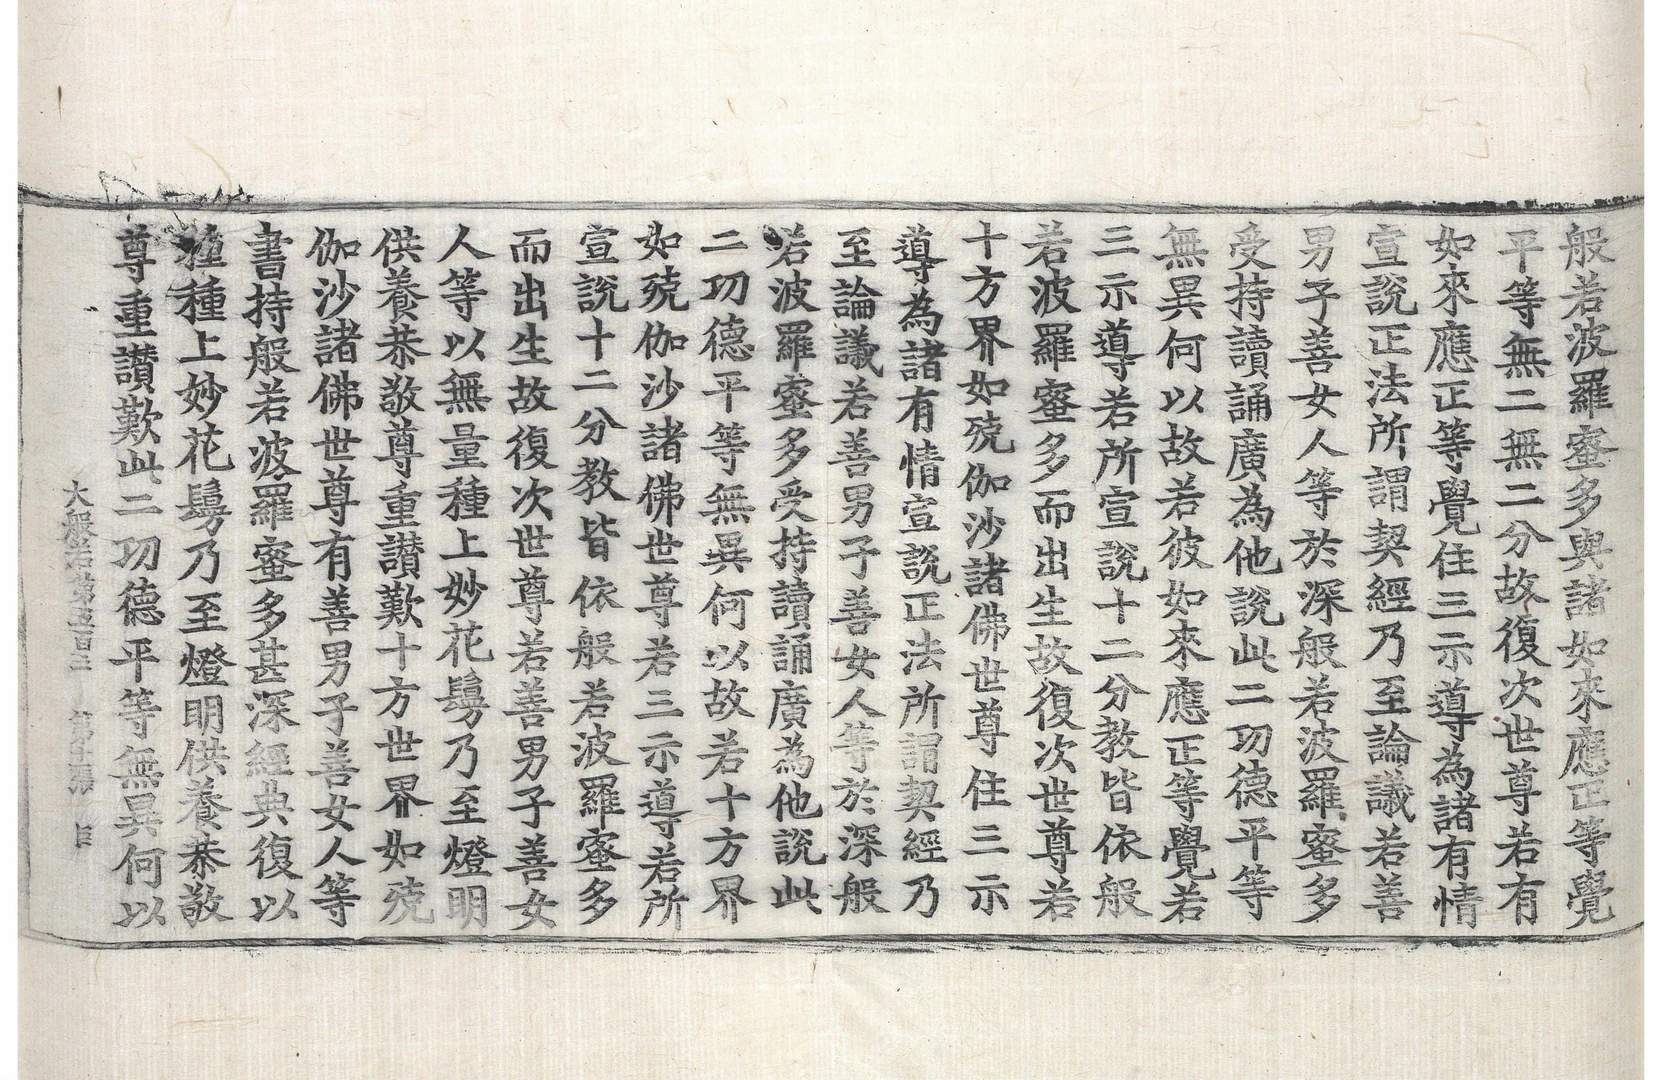 般若波羅蜜多與諸如來應正等覺
平等無二無二分故復次世尊若有
如來應正等覺住三示導為諸有情
宣說正法所謂契經乃至論議若善
男子善女人等於深般若波羅蜜多
受持讀誦廣為他說此二功德平等
無異何以故若彼如來應正等覺若
三示導若所宣說十二分教皆依般
若波羅蜜多而出生故復次世尊若
十方界如殑伽沙諸佛世尊住三示
導為諸有情宣說正法所謂契經乃
至論議若善男子善女人等於深般
若波羅蜜多受持讀誦廣為他說此
二功德平等無異何以故若十方界
如殑伽沙諸佛世尊若三示導若所
宣說十二分教皆依般若波羅蜜多
而出生故復次世尊若善男子善女
人等以無量種上妙花鬘乃至燈明
供養恭敬尊重讚歎十方世界如殑
伽沙諸佛世尊有善男子善女人等
書持般若波羅蜜多甚深經典復以
種種上妙花鬘乃至燈明供養恭敬
尊重讚歎此二功德平等無異何以
大般若第五百三 第十張